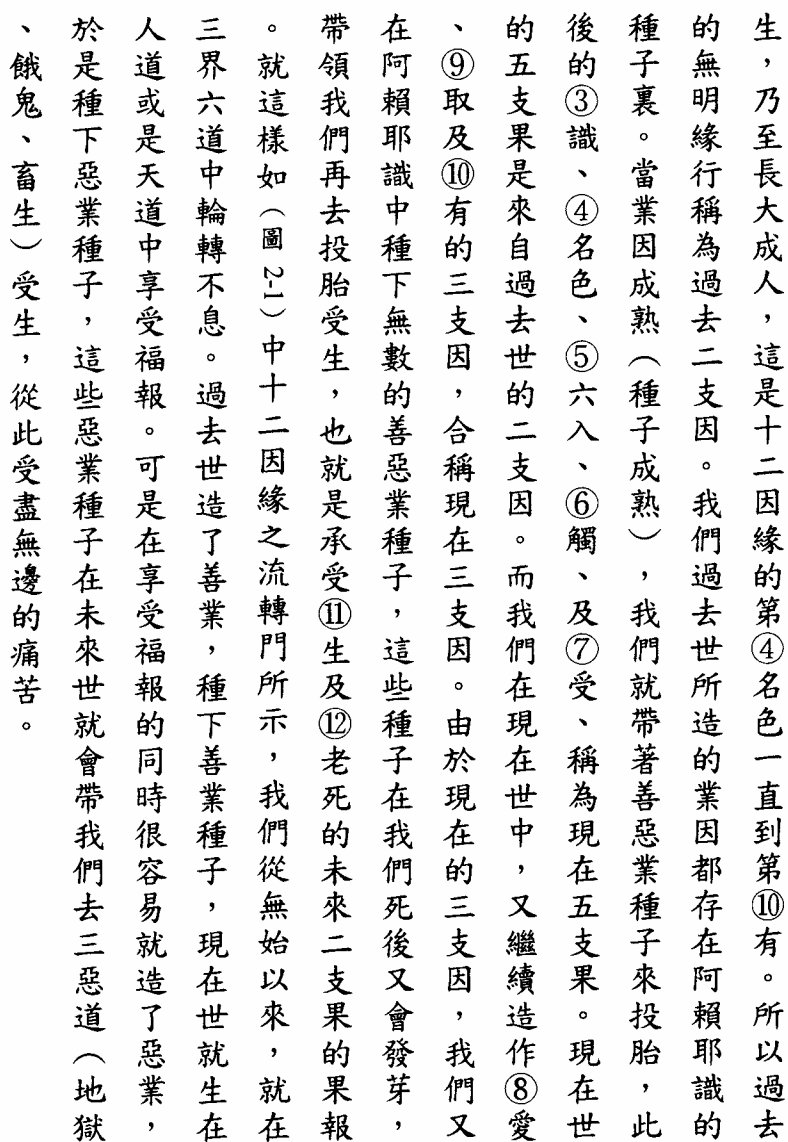 生，乃至長大成人，這是十二因緣的第④名色一直到第⑩有。所以過去
的無明緣行稱為過去二支因。我們過去世所造的業因都存在阿賴耶識的
種子裏。當業因成熟（種子成熟），我們就帶著善惡業種子來投胎，此
後的③識、④名色、⑤六入、⑥觸、及⑦受、稱為現在五支果。現在世
的五支果是來自過去世的二支因。而我們在現在世中，又繼續造作⑧愛
、⑨取及⑩有的三支因，合稱現在三支因。由於現在的三支因，我們又
在阿賴耶識中種下無數的善惡業種子，這些種子在我們死後又會發芽，
帶領我們再去投胎受生，也就是承受⑪生及⑫老死的未來二支果的果報
。就這樣如（圖 2-1）中十二因緣之流轉門所示，我們從無始以來，就在
三界六道中輪轉不息。過去世造了善業，種下善業種子，現在世就生在
人道或是天道中享受福報。可是在享受福報的同時很容易就造了惡業，
於是種下惡業種子，這些惡業種子在未來世就會帶我們去三惡道（地獄
、餓鬼、畜生）受生，從此受盡無邊的痛苦。